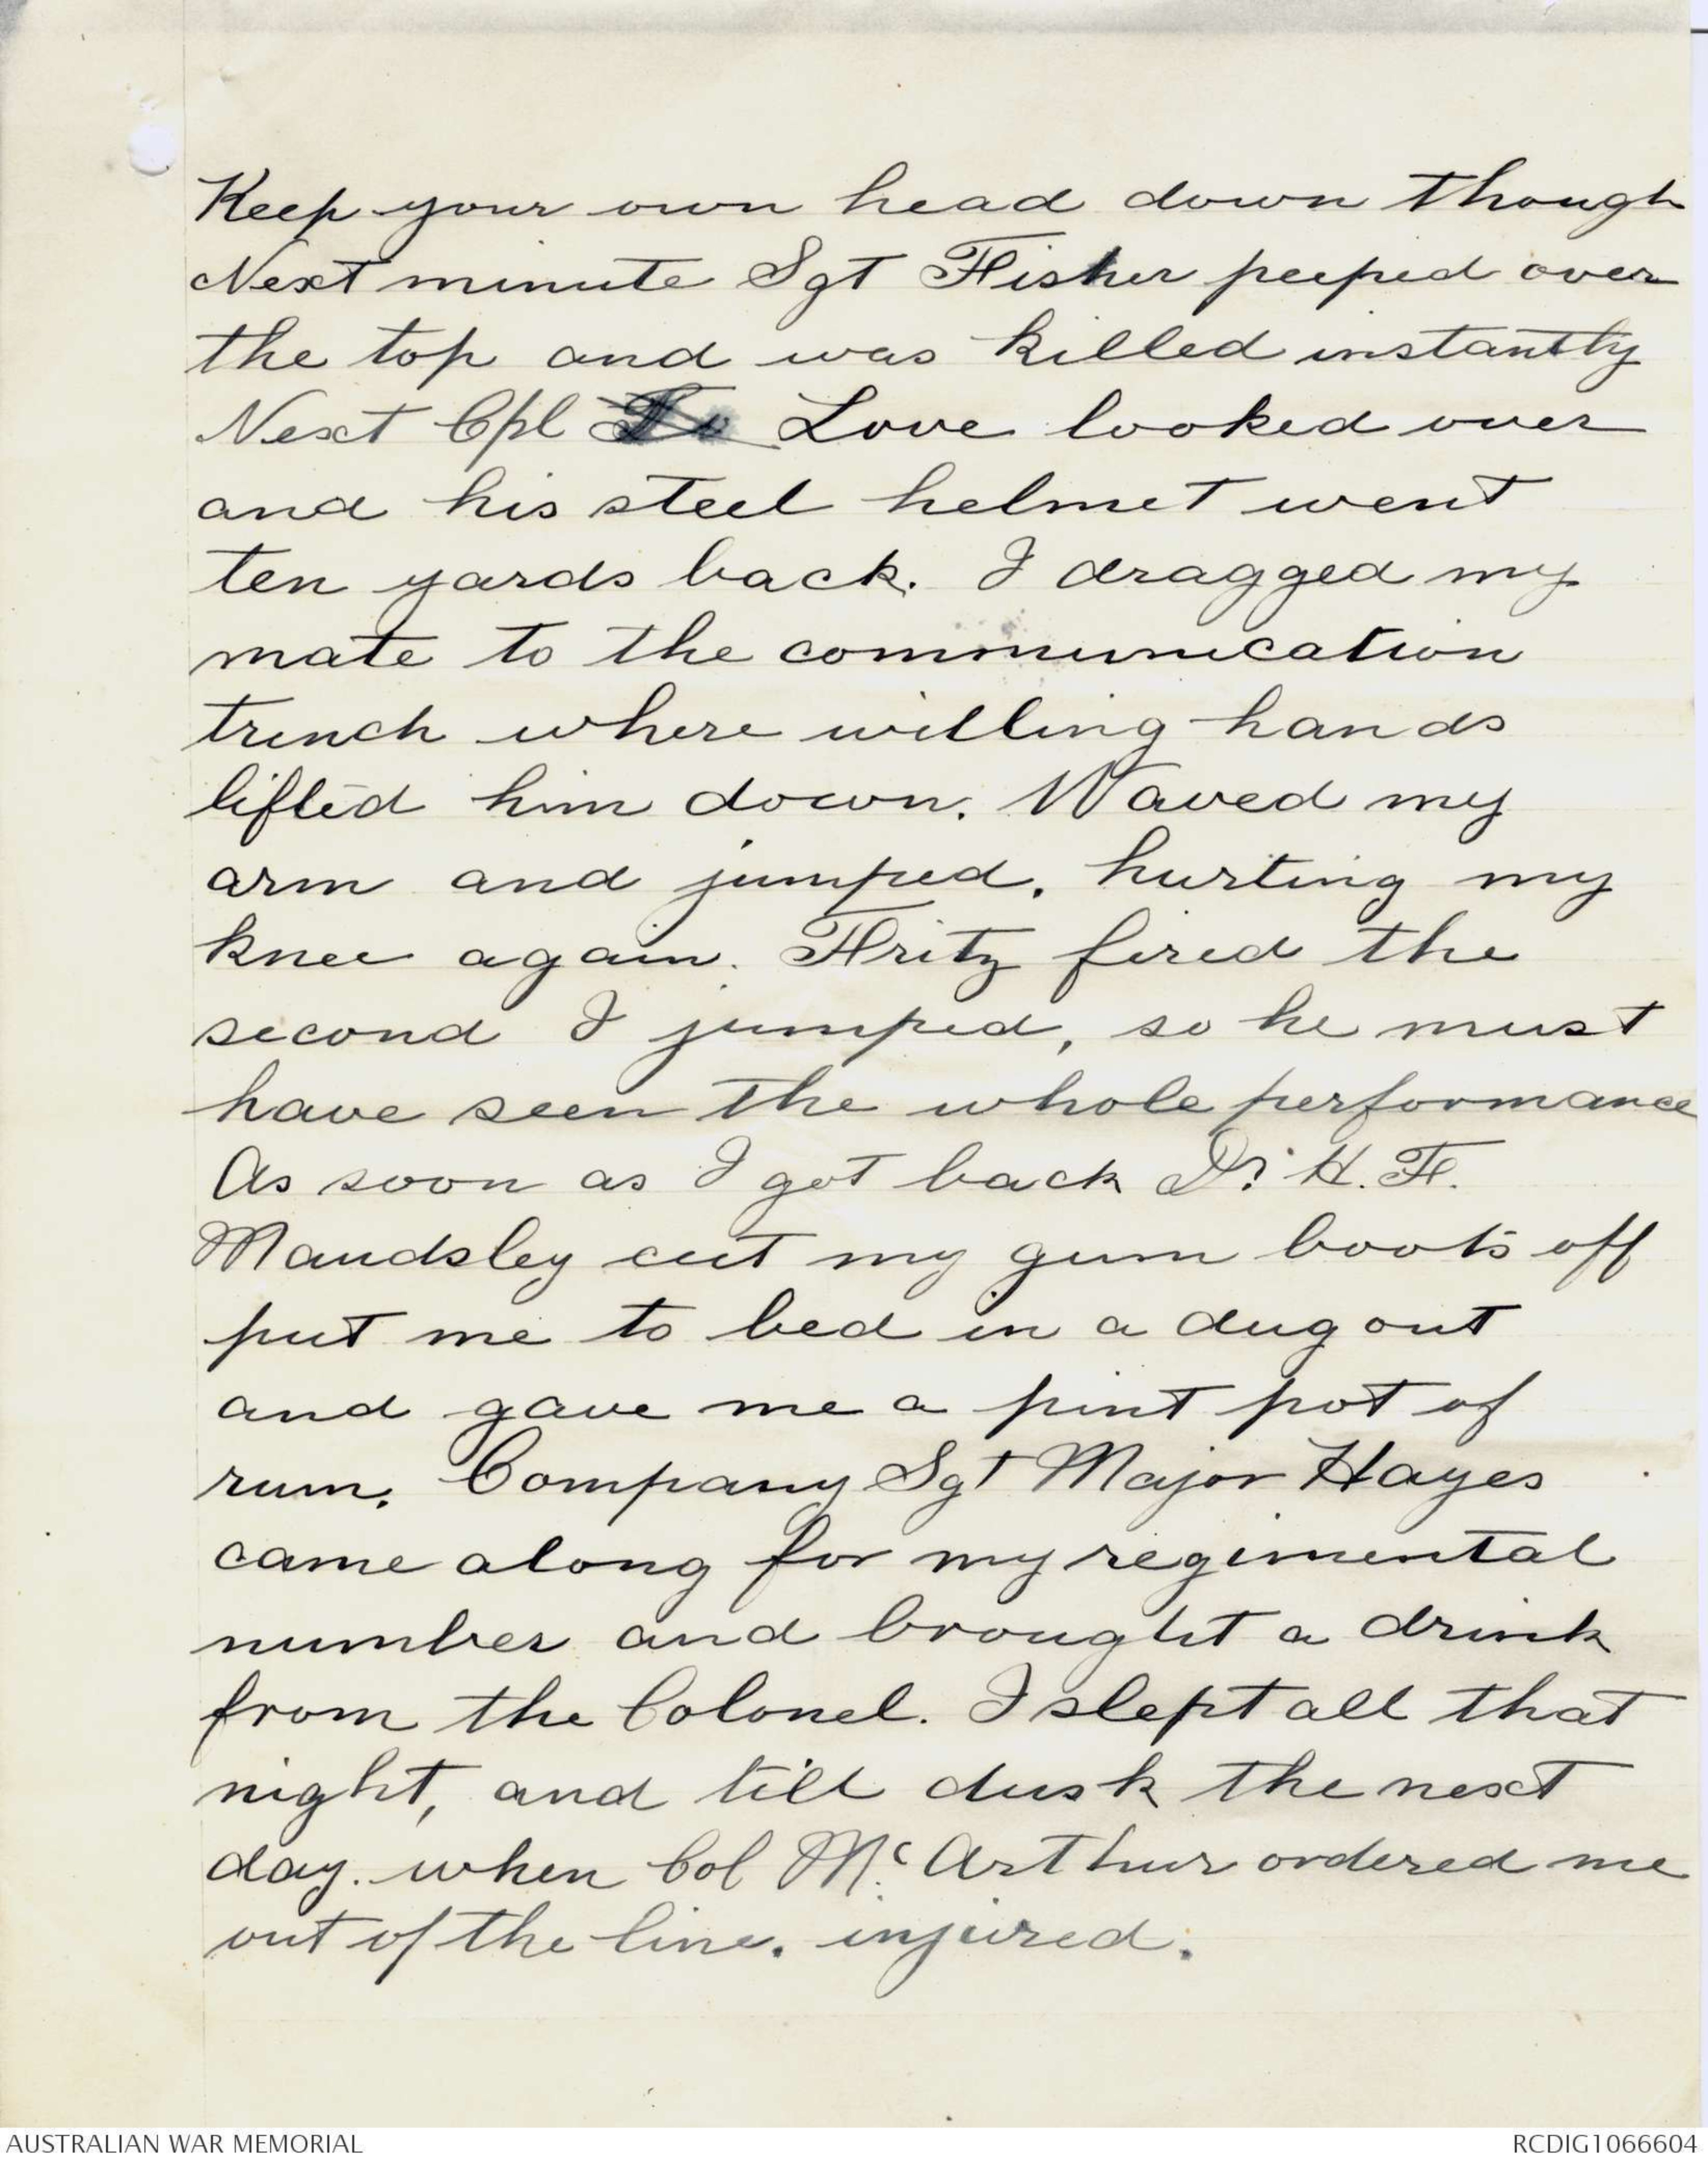 Keep your own head down though
Next minute Sgt Fisher peeped over
the top and was killed instantly
Next Cpl Love looked over
and his steel helmet went
ten yards back. I dragged my
mate to the communication
trench where willing hands
lifted him down. Waved my
arm and jumped, hurting my
knee again. Fritz fired the
second I jumped, so he must
have seen the whole performance
As soon as I got back Dr. H. F.
Maudsley cut my gum boots off
put me to bed in a dug out
and gave me a pint pot of
rum. Company Sgt Major Hayes
came along for my regimental
number and brought a drink
from the Colonel. I slept all that
night, and till dusk the next
day. when Col McArthur ordered me
out of the line. injured.
AUSTRALIAN WAR MEMORIAL
RCDIG1066604